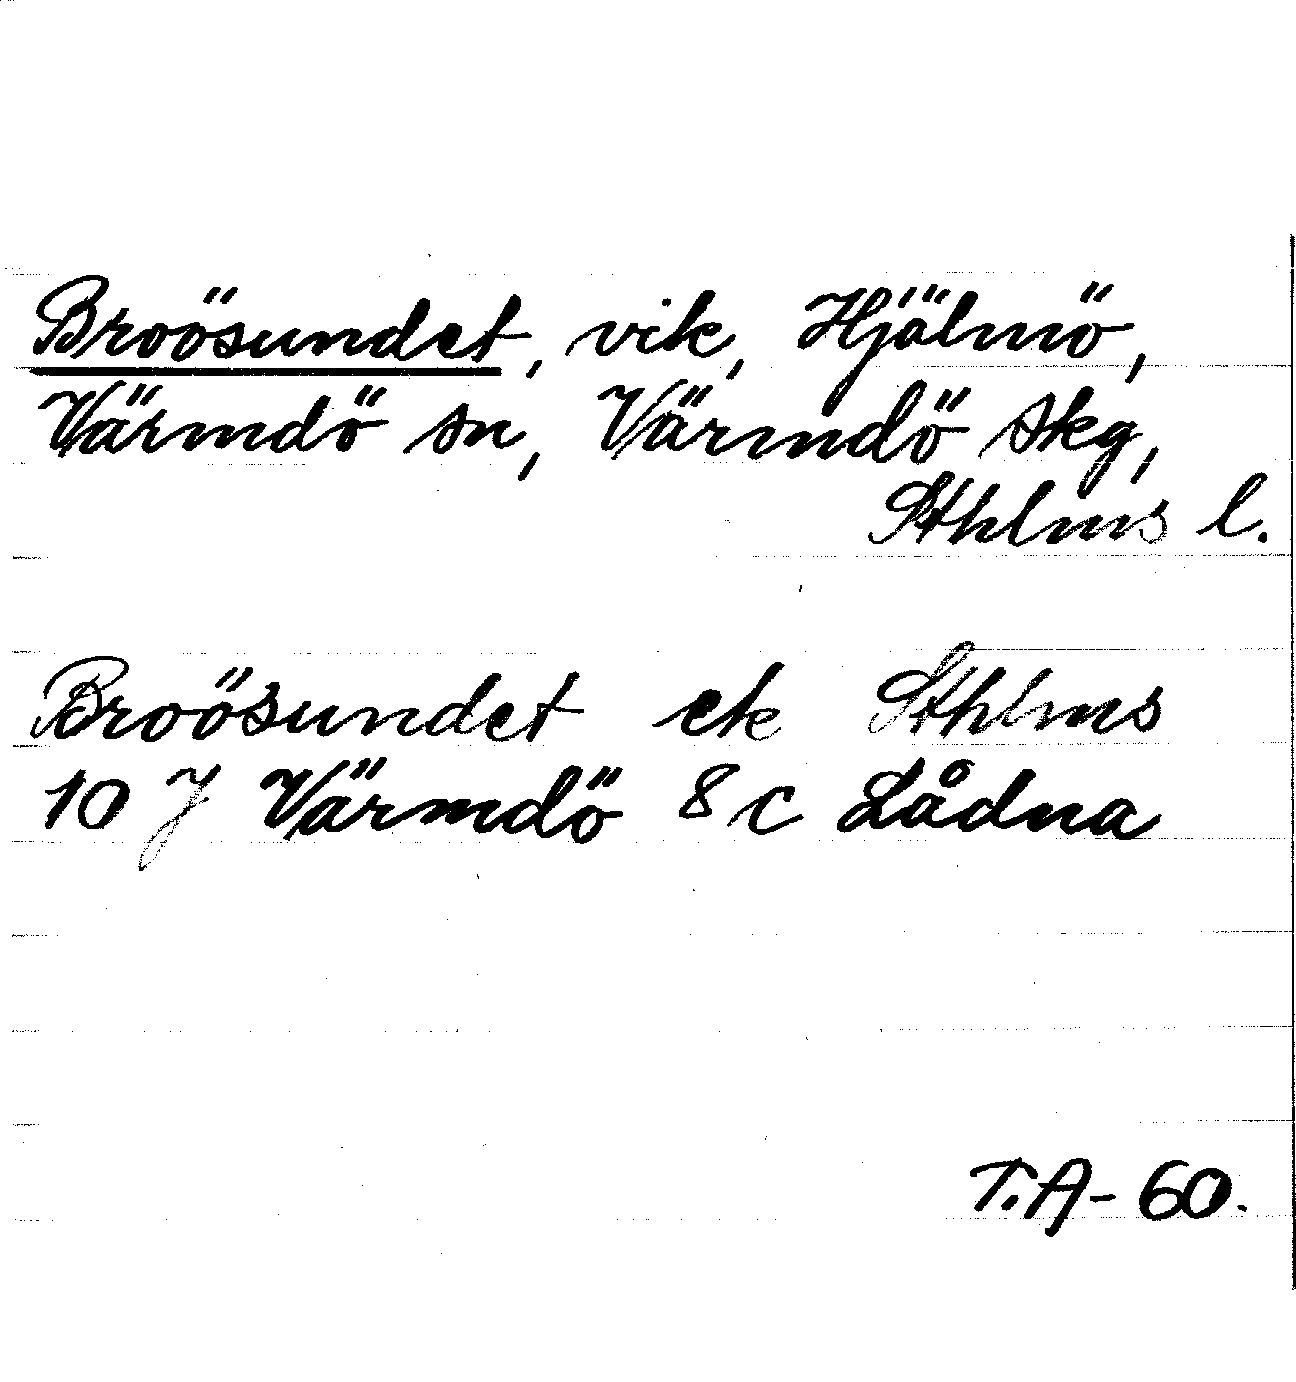 Broösundet, vik, Hjälmö,
Värmdö sn, Värmdö skg,
Sthlms l.
Broösundet ek Sthlms
10 J Värmdö 8 c Lådna
T.A-60.